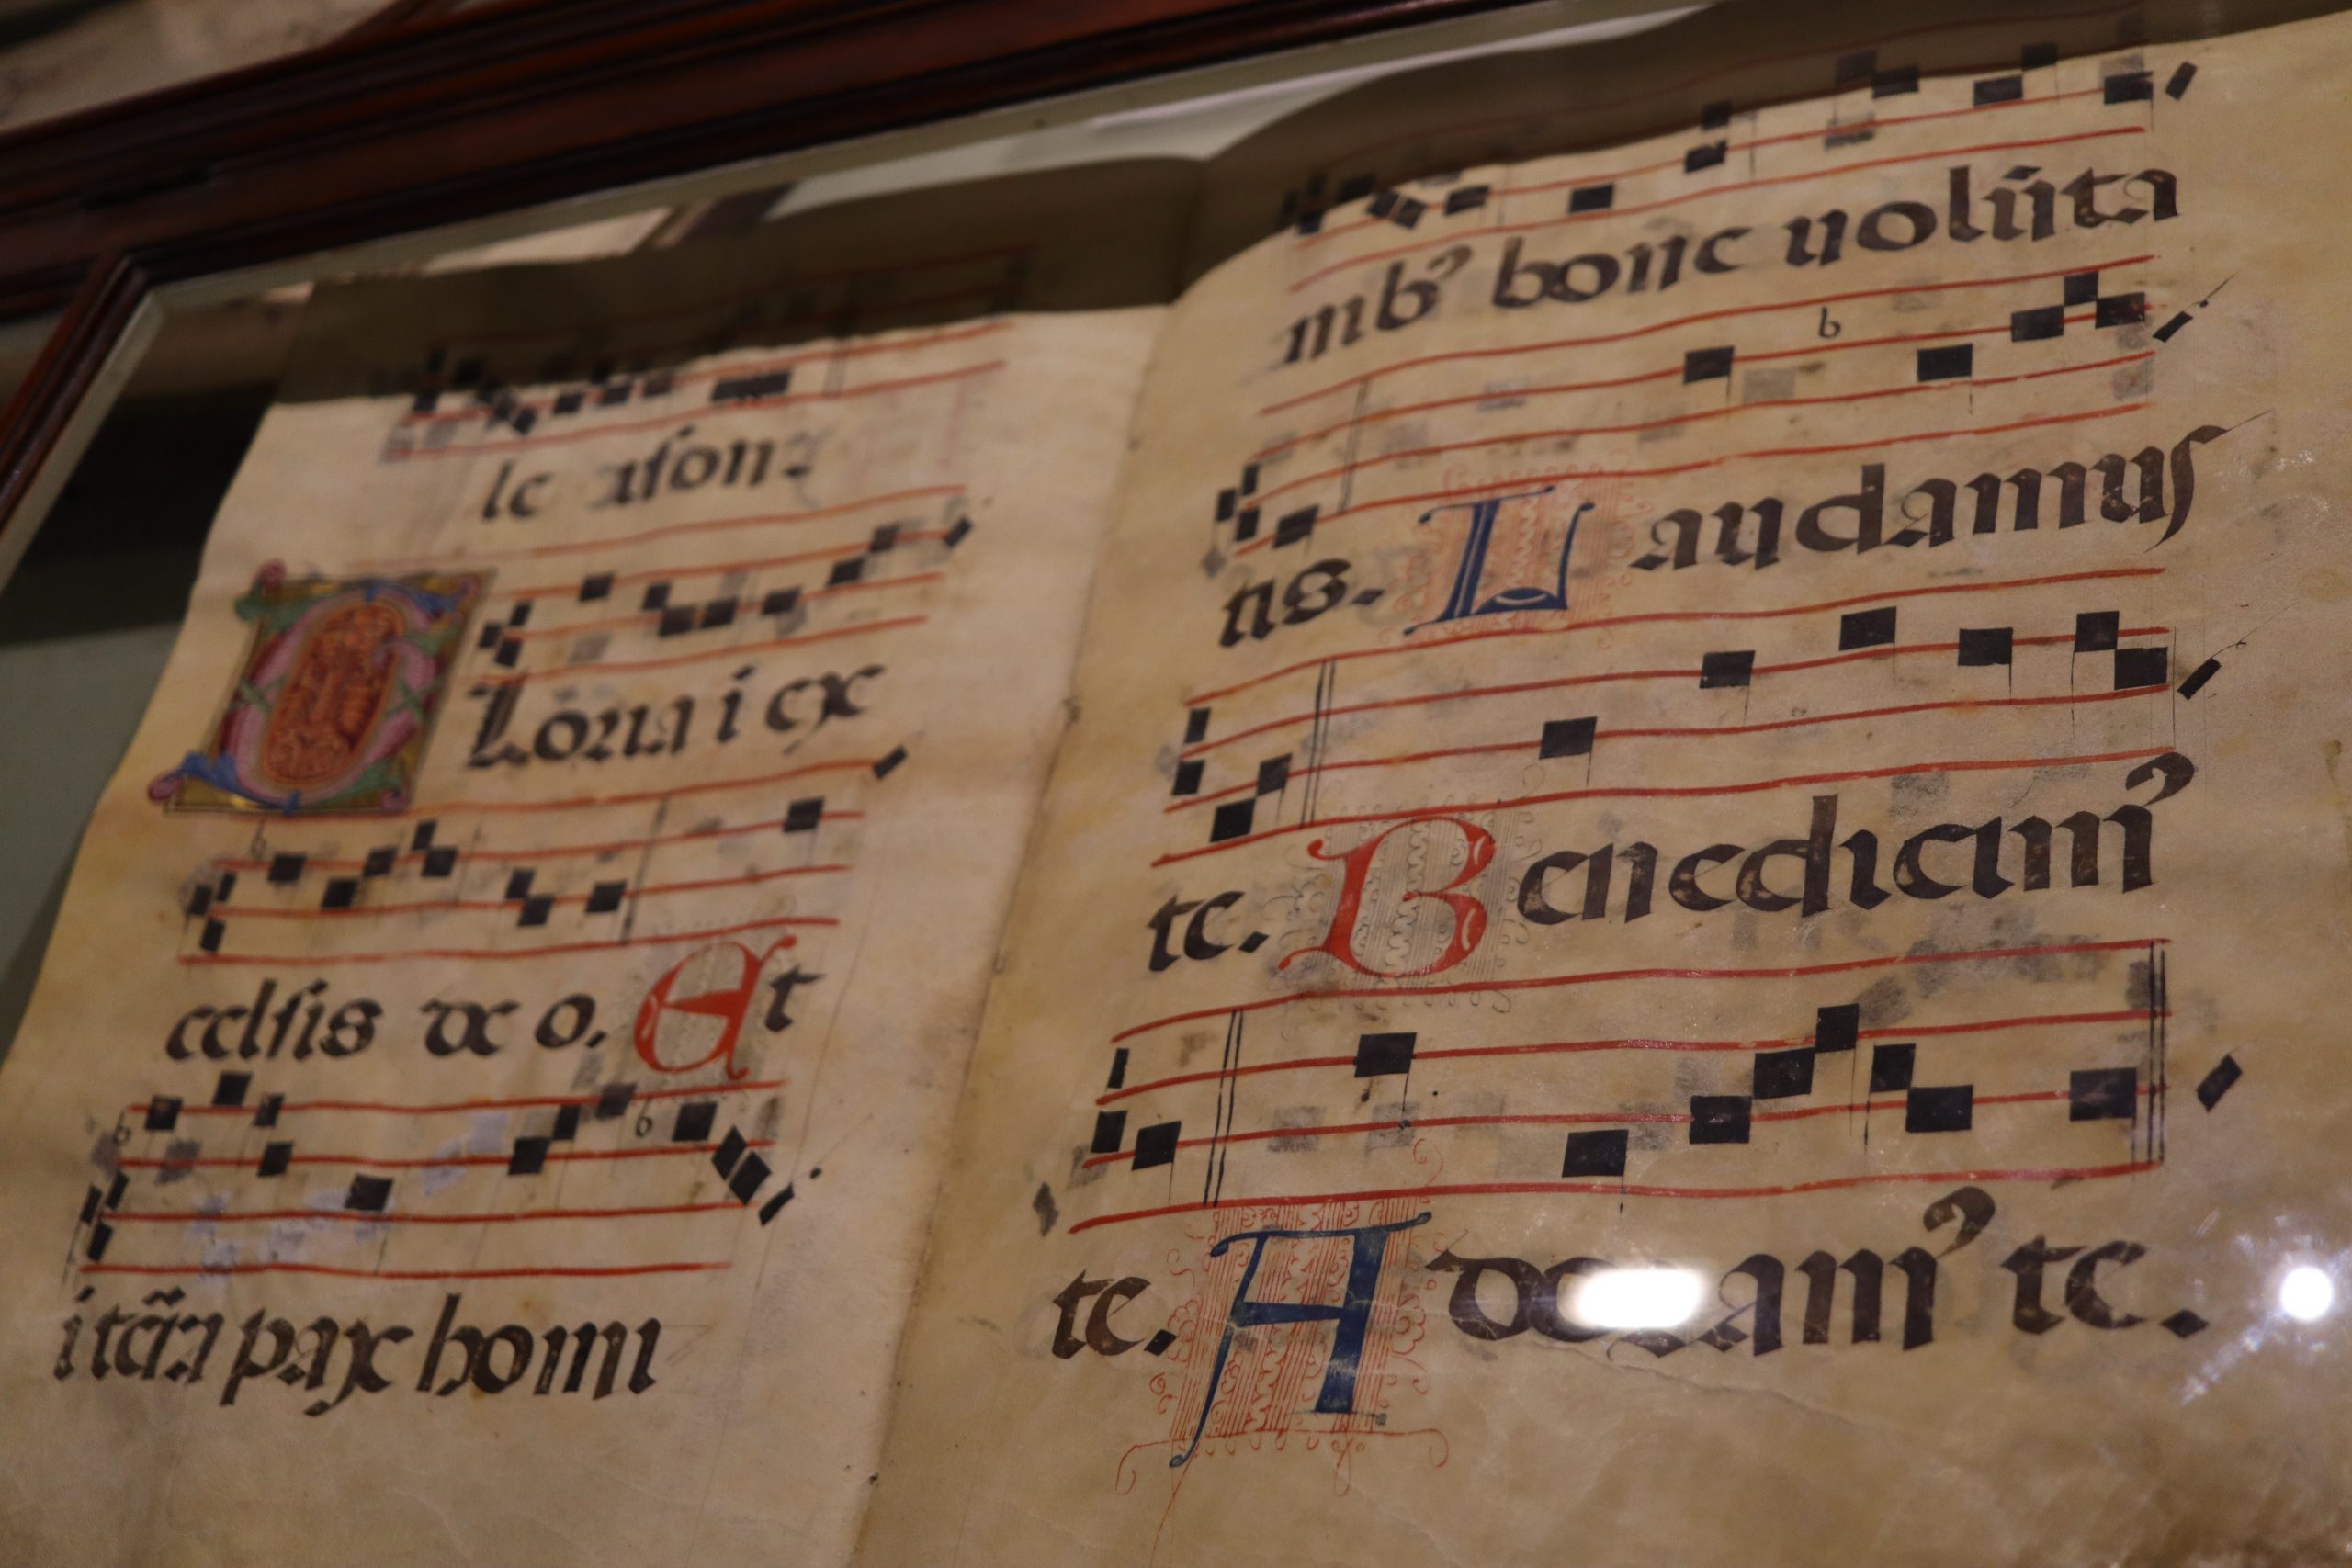 le ẏson:
Gloria i ex
celsis deo. Et
i terã pax homi
nibꝰ bone uolũta
tis. Laudamus
te. Benedicimꝰ
te. Adoramꝰ te.